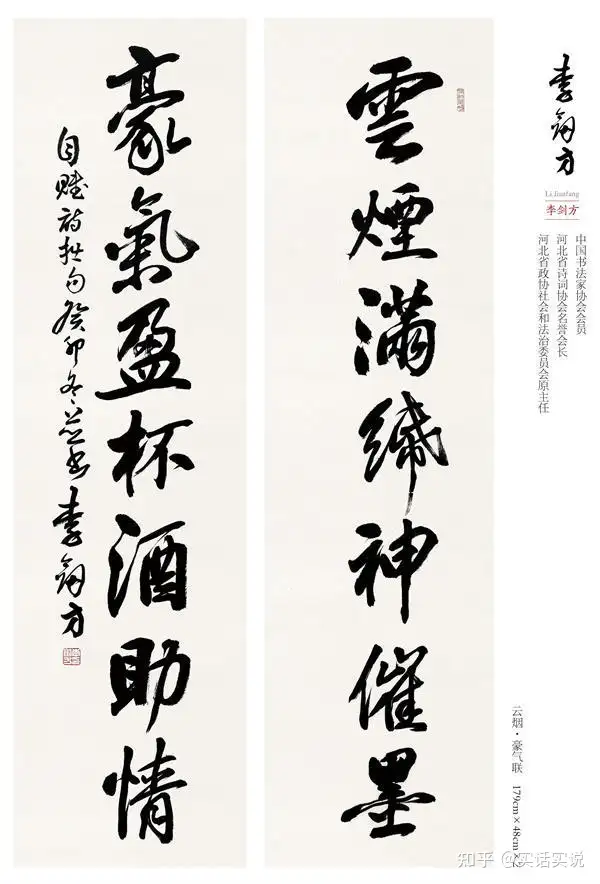 李劍方
Li Jianfang
李剑方
中国书法家协会会员
河北省诗词协会名誉会长
河北省政协社会和法治委员会原主任
云烟·豪气联 179cm×48cm×2
雲煙滿紙神催墨
豪氣盈杯酒助情
自赋诗拙句癸卯冬並书李劍方
知乎 @实话实说